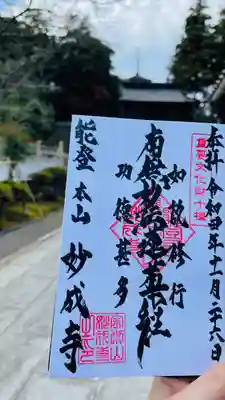 奉拝 令和四年十一月二十六日
重要文化財十棟
如説修行
南無妙法蓮華経
功徳甚多
能登 本山 妙成寺